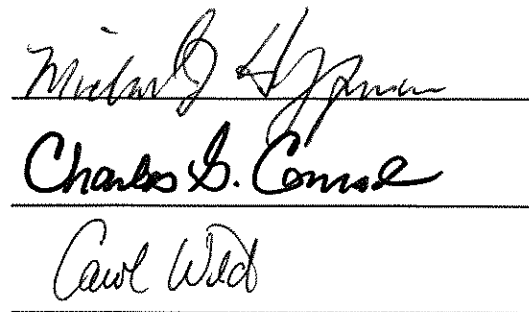 Michael J. H
Charles G. Conrad
Carol Wild